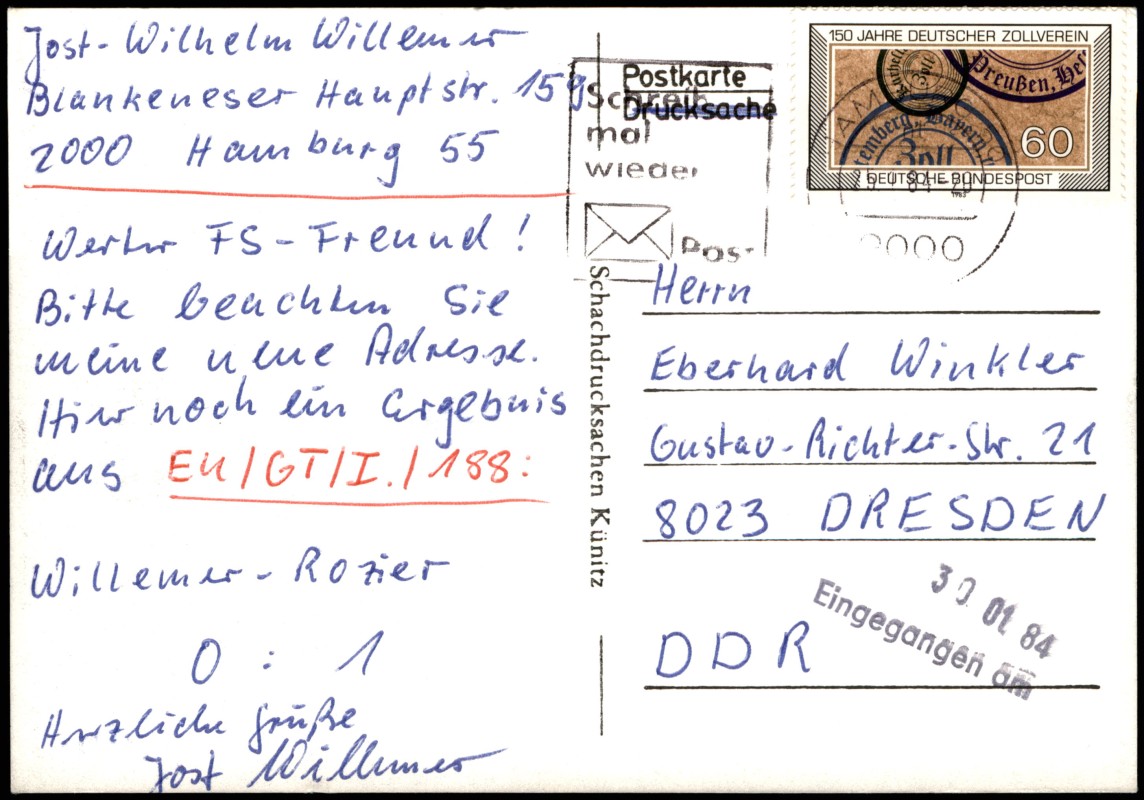 Jost-Wilhelm Willemer
Blankeneser Hauptstr. 159
2000 Hamburg 55
Werter FS-Freund!
Bitte beachten Sie
meine neue Adresse.
Hier noch ein Ergebnis
aus EU/GT/I./188:
Willemer - Rozier
0 : 1
Herzliche Grüße
Jost Willemer
Postkarte
Drucksache
Schreib
mal
wieder
Post
Schachdrucksachen Künitz
150 JAHRE DEUTSCHER ZOLLVEREIN
Preußen, Hes
Zoll
60
DEUTSCHE BUNDESPOST
2000
Herrn
Eberhard Winkler
Gustav-Richter-Str. 21
8023 DRESDEN
DDR
30 01 84
Eingegangen am